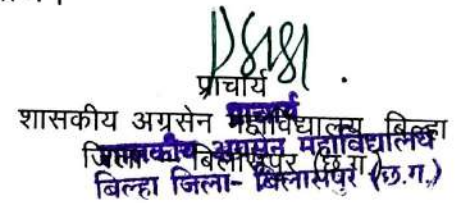 प्राचार्य
शासकीय अग्रसेन महाविद्यालय बिल्हा
जिला - बिलासपुर (छ.ग.)
प्राचार्य
शासकीय अग्रसेन महाविद्यालय
बिल्हा जिला- बिलासपुर (छ.ग.)